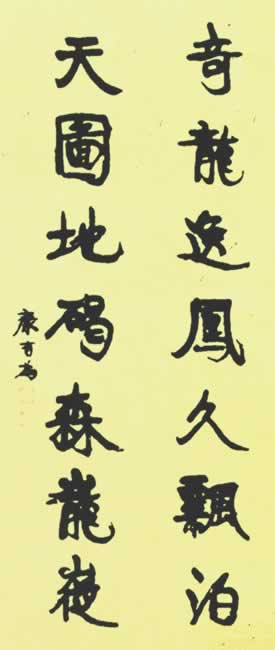 竒龍逸鳳久飄泊
天圖地碣森巃嵸
康有為